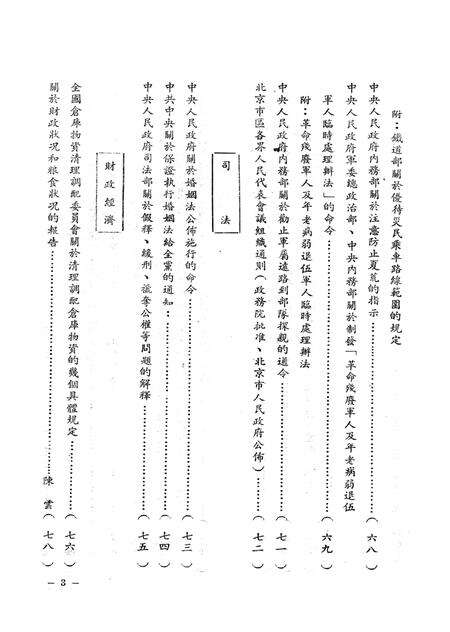 附：鐵道部關於優待災民乘車路線範圍的規定
中央人民政府內務部關於注意防止夏荒的指示⋯⋯（六八）
中央人民政府軍委總政治部、中央內務部關於制發「革命殘廢軍人及年老病弱退伍
軍人臨時處理辦法」的命令⋯⋯（六九）
附：革命殘廢軍人及年老病弱退伍軍人臨時處理辦法
中央人民政府內務部關於勸止軍屬遠路到部隊探親的通令⋯⋯（七一）
北京市區各界人民代表會議組織通則（政務院批准、北京市人民政府公佈）⋯⋯（七二）
司法
中央人民政府關於婚姻法公佈施行的命令⋯⋯（七三）
中共中央關於保證執行婚姻法給全黨的通知⋯⋯（七四）
中央人民政府司法部關於假釋、緩刑、褫奪公權等問題的解釋⋯⋯（七五）
財政經濟
全國倉庫物資清理調配委員會關於清理調配倉庫物資的幾個具體規定⋯⋯（七六）
關於財政狀況和粮食狀況的報告⋯⋯陳雲（七八）
— 3 —